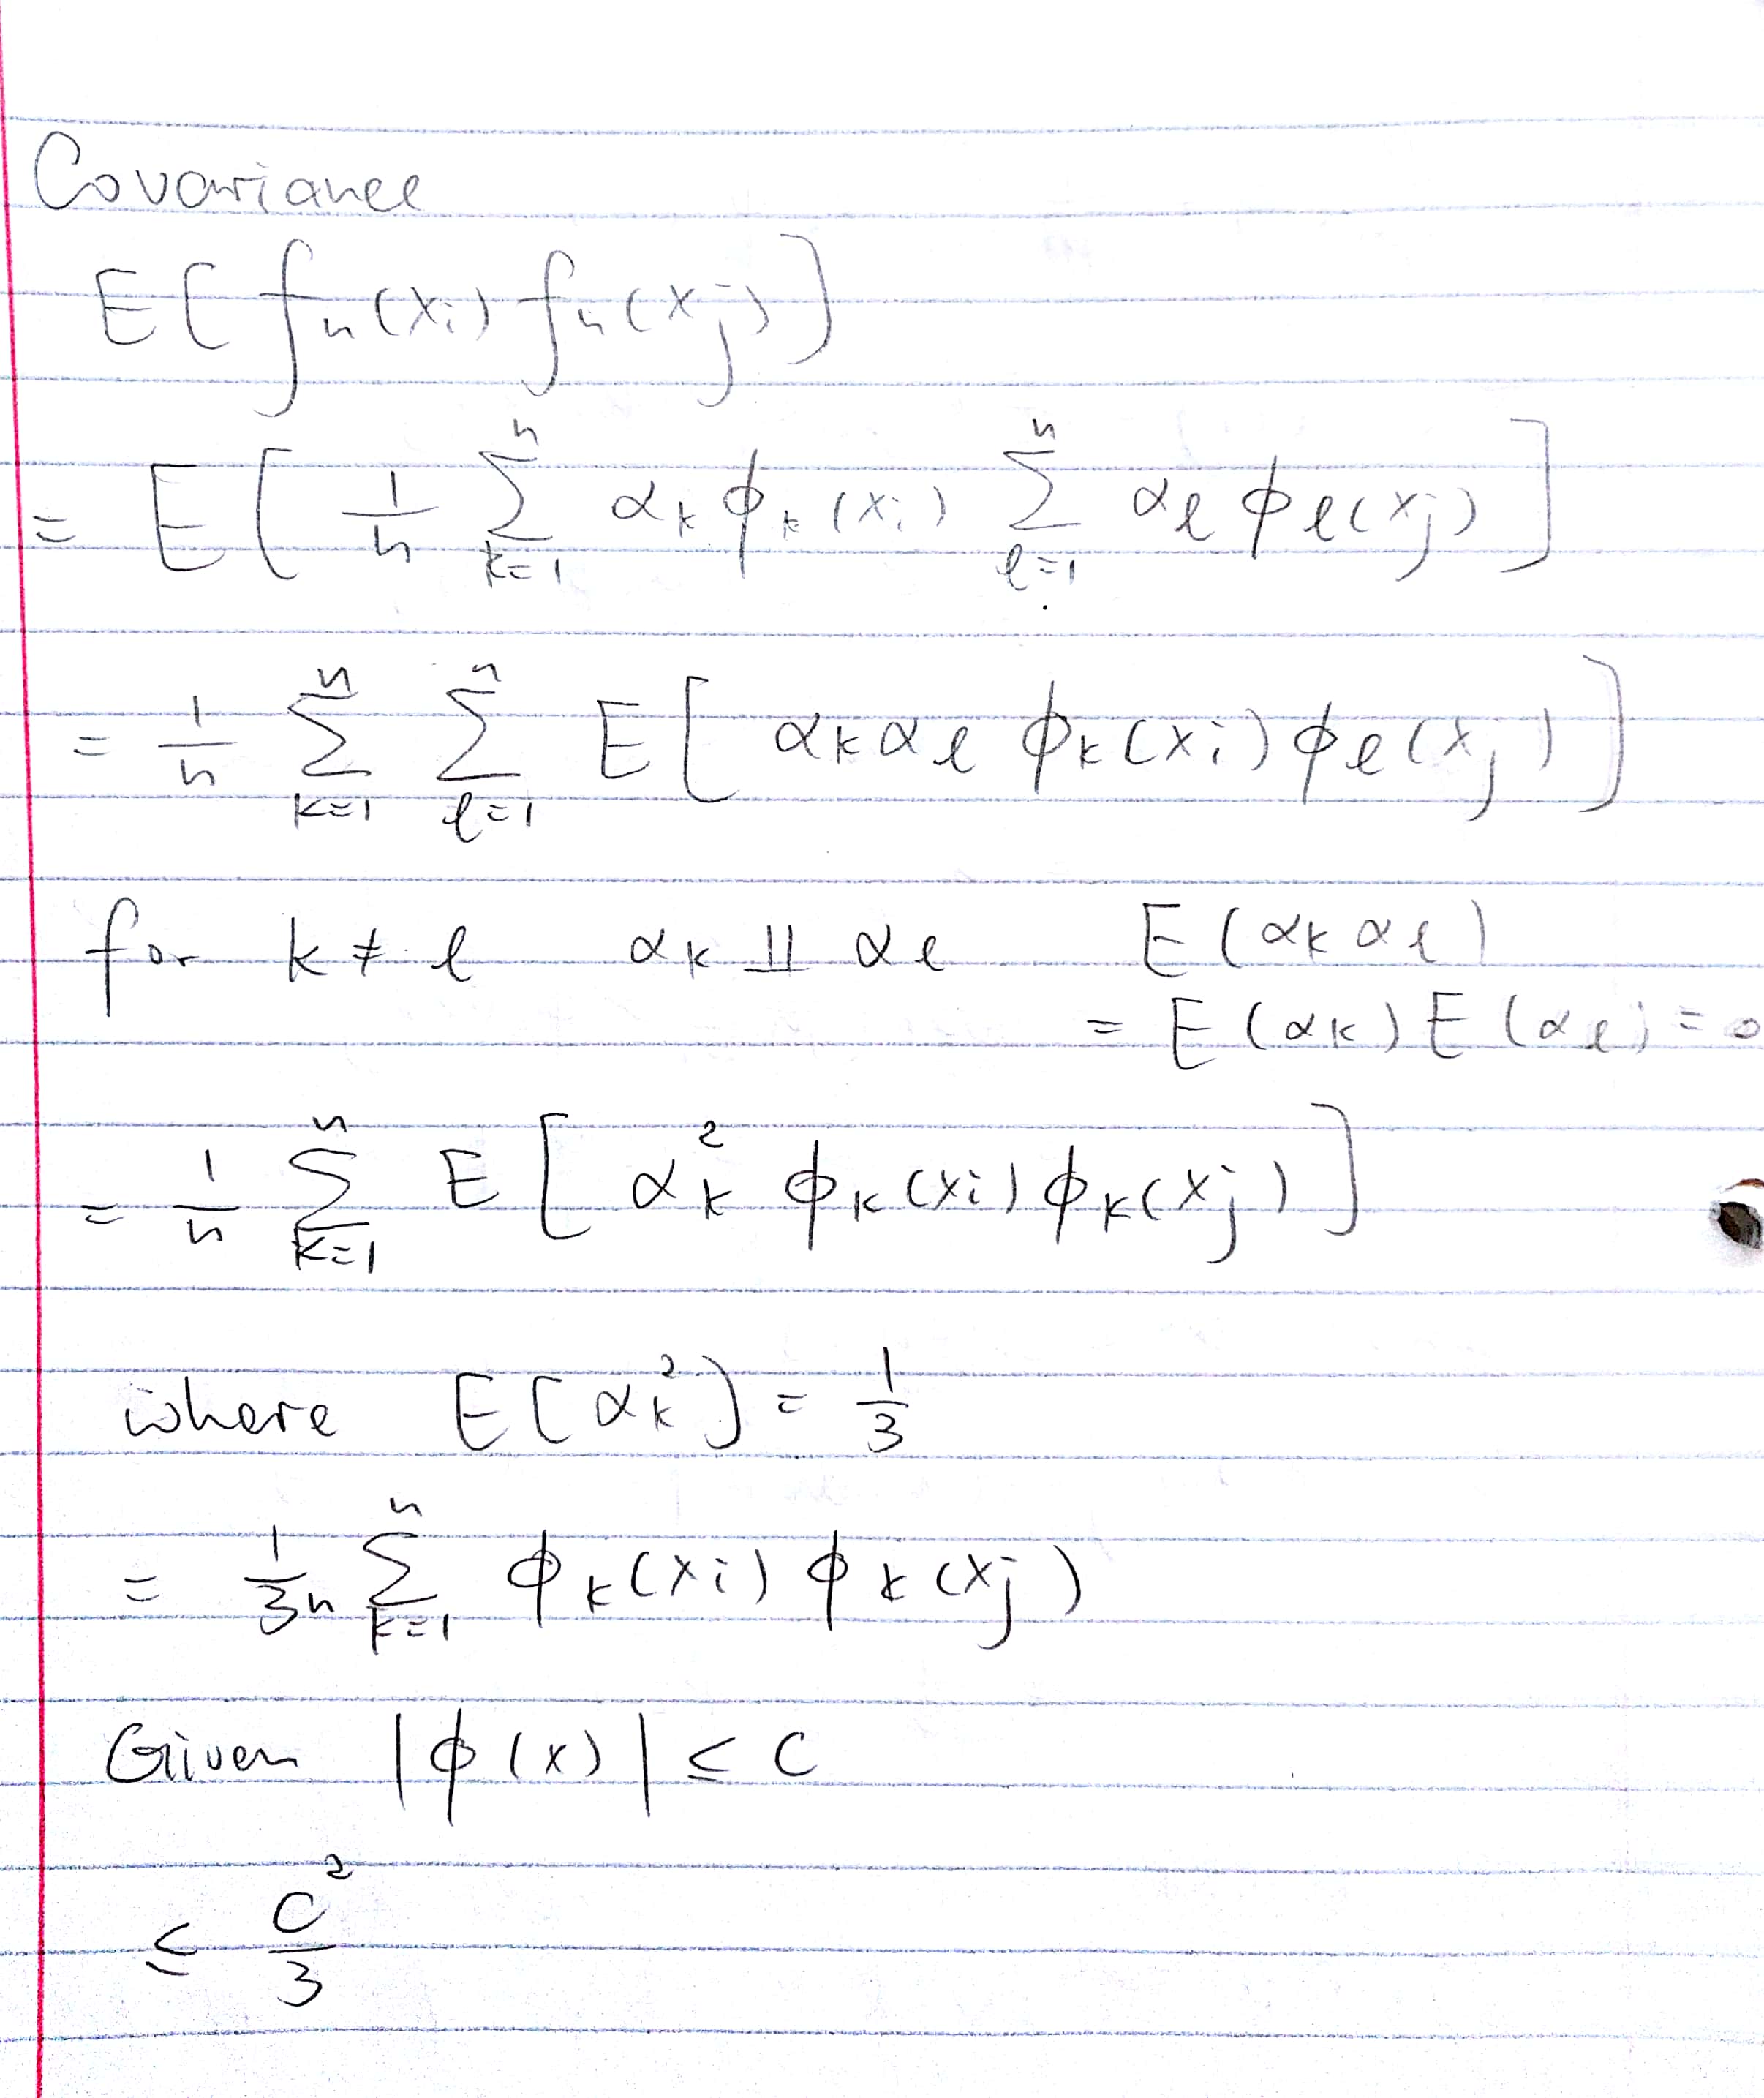 Covariance
E[fₙ(xᵢ) fₙ(xⱼ)]
= E[ 1/n ∑ₖ₌₁ⁿ αₖ ϕₖ(xᵢ) ∑ₗ₌₁ⁿ αₗ ϕₗ(xⱼ) ]
= 1/n ∑ₖ₌₁ⁿ ∑ₗ₌₁ⁿ E[ αₖαₗ ϕₖ(xᵢ) ϕₗ(xⱼ) ]
for k ≠ ℓ αₖ ⫫ αₗ E(αₖαₗ)
= E(αₖ) E(αₗ) = 0
= 1/n ∑ₖ₌₁ⁿ E[ αₖ² ϕₖ(xᵢ) ϕₖ(xⱼ) ]
where E[αₖ²] = 1/3
= 1/3n ∑ₖ₌₁ⁿ ϕₖ(xᵢ) ϕₖ(xⱼ)
Given |ϕ(x)| ≤ C
≤ C²/3